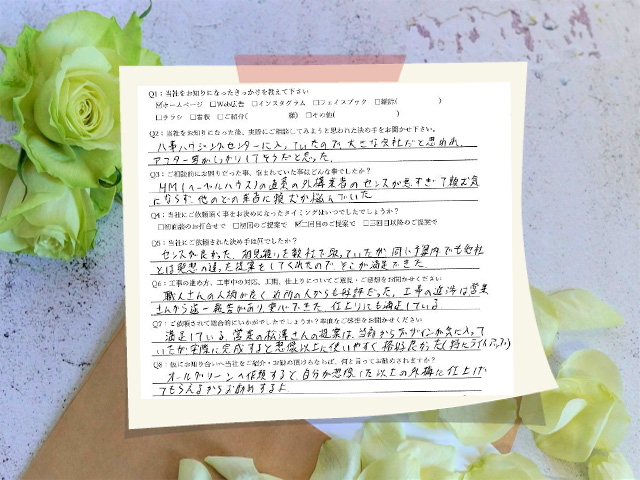 Q1：当社をお知りになったきっかけを教えて下さい
☑ホームページ □Web広告 □インスタグラム □フェイスブック □雑誌( )
□チラシ □看板 □ご紹介( 様) □その他( )
Q2：当社をお知りになった後、実際にご相談してみようと思われた決め手をお聞かせ下さい。
八事ハウジングセンターに入っていたので大きな会社だと思われ、
アフター等がしっかりしてそうだと思った。
Q3：ご相談前にお困りだった事、悩まれていた事はどんな事でしたか？
HM(ヘーベルハウス)の直系の外構業者のセンスが悪すぎて頼む気
にならず、他のどの業者に頼むか悩んでいた
Q4：当社にご依頼頂く事をお決めになったタイミングはいつでしたでしょうか？
□初面談のお打合せで □初回のご提案で ☑二回目のご提案で □三回目以降のご提案で
Q5：当社にご依頼された決め手は何でしたか？
センスが良かった。相見積りを数社で取っていたが同じ予算内でも他社
とは発想の違った提案をしてくれたのでそこが満足できた。
Q6：工事の進め方、工事中の対応、工期、仕上りについてご意見・ご感想をお聞かせください
職人さんの人柄が良く近所の人からも好評だった。工事の進渉は営業
さんから逐一報告があり安心できた。仕上りにも満足している
Q7：ご依頼されて総合的にいかがでしたでしょうか？率直なご感想をお聞かせください
満足している。営業の松澤さんの提案は、当初からデザインが気に入って
いたが実際に完成すると想像以上に使いやすく格好良かった(特にライトアップ)
Q8：仮にお知り合いへ当社をご紹介・お勧め頂けるならば、何と言ってお勧めされますか？
オールグリーンへ依頼すると自分が想像した以上の外構に仕上げ
てもらえるからお勧めするよ